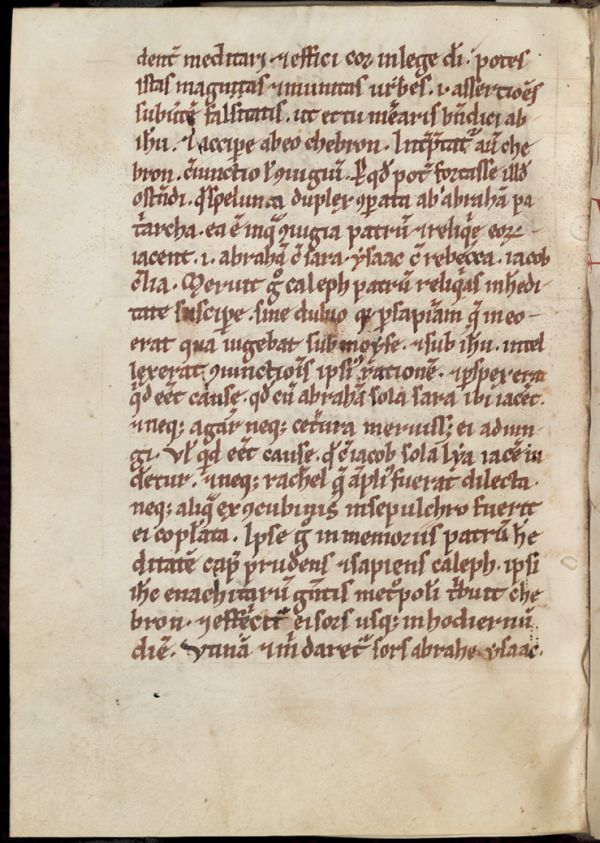 dent᷑ meditari ⁊ effici eoꝝ in lege dī. potes
istas magnitas ⁊ munitas urbes. i. assertiões
subũtẽ falsitatis. ut et tu mẽaris bñdici ab
ihu. ⁊ accipe ab eo chebron. Int̃p̃tat᷑ aũ che
bron. ꝯiunctio ł ꝯiugiũ. qd pot̃ fortasse illđ
ostẽdi. qđ spelunca duplex ꝯparata ab abraham pa
t̃archa. ea ẽ in q̃ ꝯiugia patrũ ⁊ reliq̃e eoꝝ
iacent. i. abrahã cũ sara. ysaac cũ rebecca. iacob
cũ lia. Meruit g̊ caleph patrũ reliq̃as in hedi
tate suscipe. sine dubio qr ꝑsapiam q̃ in eo
erat qua iugebat sub moyse. ⁊ sub ihu. intel
lexerat ꝯiunctiõis ipsiꝰ rationẽ. ⁊ ꝑspexerat
qđ eẽt cause. qđ cũ abrahã sola sara ibi iacet.
⁊ neq; agar neq; cet̃tura meruiss; ei adiun
gi. Vł qđ eẽt cause. qđ cũ iacob sola lya iacẽ ui
det̃ur. ⁊ neq; rachel q̃ ãpliꝰ fuerat dilecta.
neq; aliq̃ ex ꝯcubinis in sepulchro fuerit
ei copłata. Ipse g̊ in memoriis patrũ he
ditatẽ cap̃ prudens ⁊ sapiens caleph. ipsi
ihc enachitarũ gẽtis met̊poli t̃buit che
bron. ⁊ effecit᷑ ei sors usq; in hodiernũ
diẽ. Vnã ⁊ im̃ daret᷑ sors abrahe. ysaac.